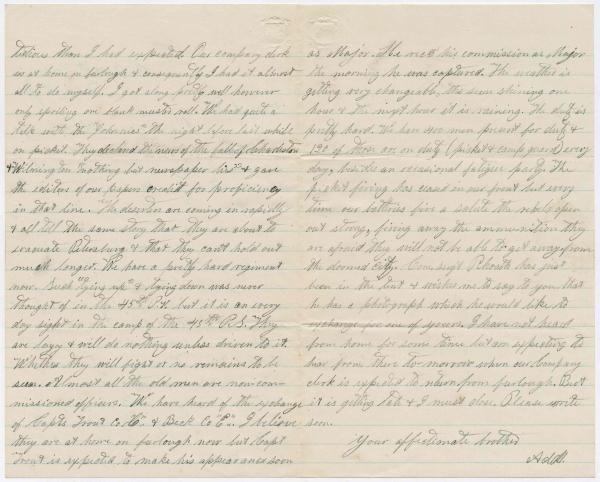 tedious than I had expected. Our company clerk
is at home on furlough & consequently I had it almost
all to do myself. I got along pretty well however
only spoiling one blank muster roll. We had quite a
talk with the "Johnnies" the night before last while
on picket. They declared the news of the fall of Charleston
& Wilmington nothing but newspaper lies & gave
the editors of our papers credit for proficiency
in that line. The deserters are coming in rapidly
& all tell the same story that they are about to
evacuate Petersburg & that they can't hold out
much longer. We have a pretty hard regiment
now. Such tying up & tying down was never
thought of in the 45th P.V. but it is an every
day sight in the camp of the 45th R.S. They
are lazy & will do nothing unless driven to it.
Whether they will fight or no remains to be
seen. Most all the old men are non-com-
missioned officers. We have heard of the exchange
of Capts Trout Co "K" & Beck Co "E". I believe
they are at home on furlough now but Capt
Trout is expected to make his appearance soon
as Major. He rec'd his commission as Major
the morning he was captured. The weather is
getting very changeable, the sun shining one
hour & the next hour it is raining. The duty is
pretty hard. We have 400 men present for duty &
120 of them are on duty (picket & camp guard) every
day, besides an occasional fatigue party. The
picket firing has ceased in our front but every
time our batteries fire a salute the rebels open
out strong, firing away the ammunition they
are afraid they will not be able to get away from
the doomed city. Com Sergt has just
been in the tent & wishes me to say to you that
he has a photograph which he would like to
exchange for one of yours. I have not heard
from home for some time but am expecting to
hear from there to-morrow when our Company
clerk is expected to return from furlough. But
it is getting late & I must close. Please write
soon.
Your affectionate brother